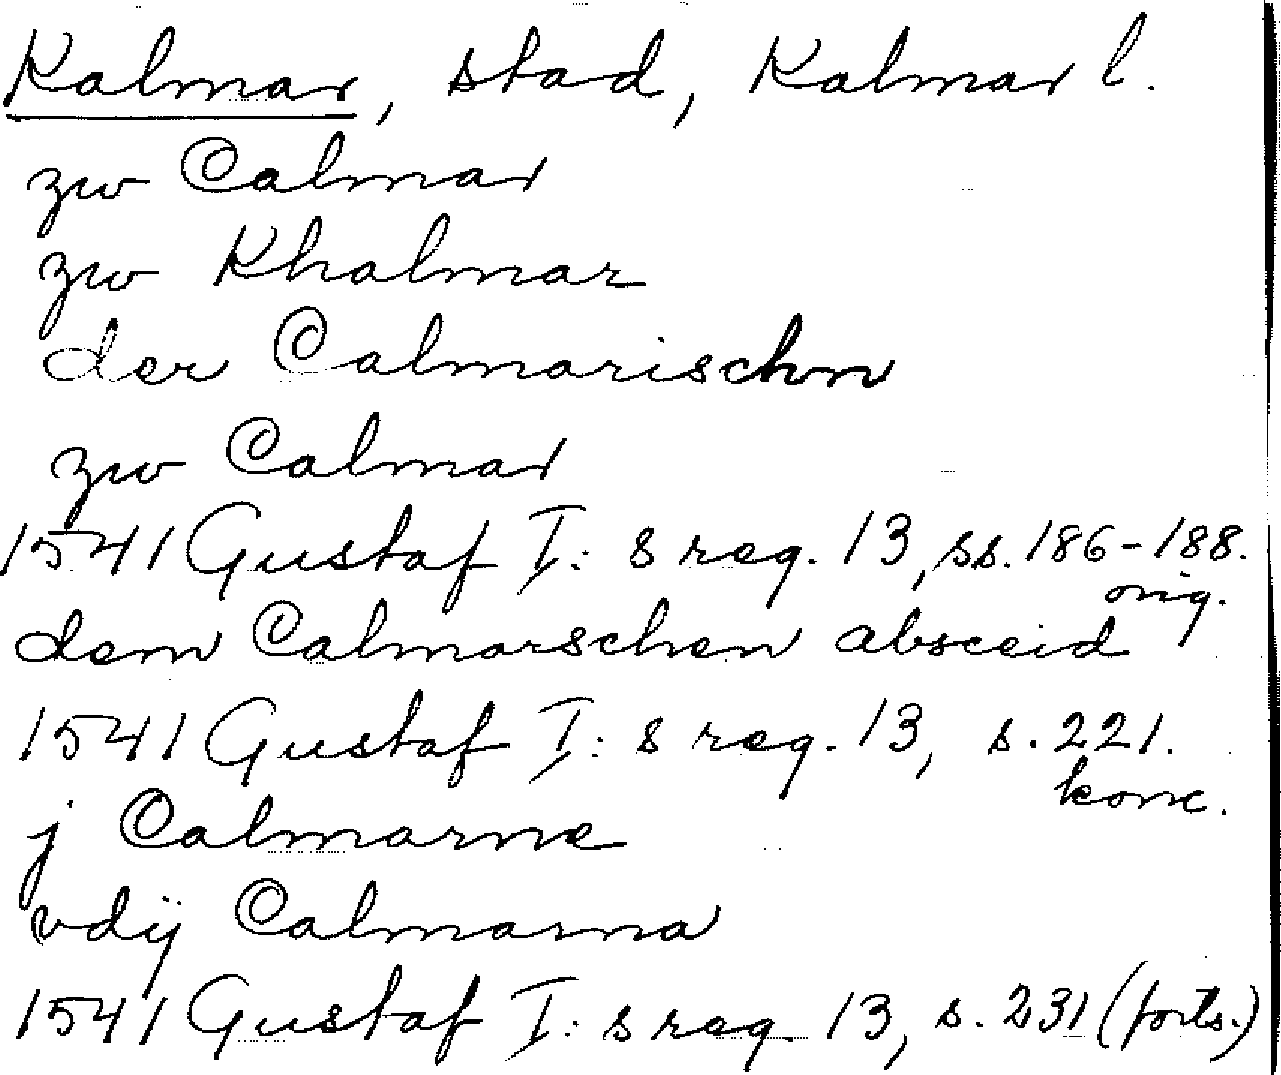 Kalmar, stad, Kalmar l.
zw Calmar
zw Khalmar
der Calmarischn
zw Calmar
1541 Gustaf I:s reg. 13, ss. 186-188.
orig.
dem Calmarschen absceid
1541 Gustaf I:s reg. 13, s. 221.
konc.
j Calmarne
vdij Calmarna
1541 Gustaf I:s reg. 13, s. 231 (forts.)